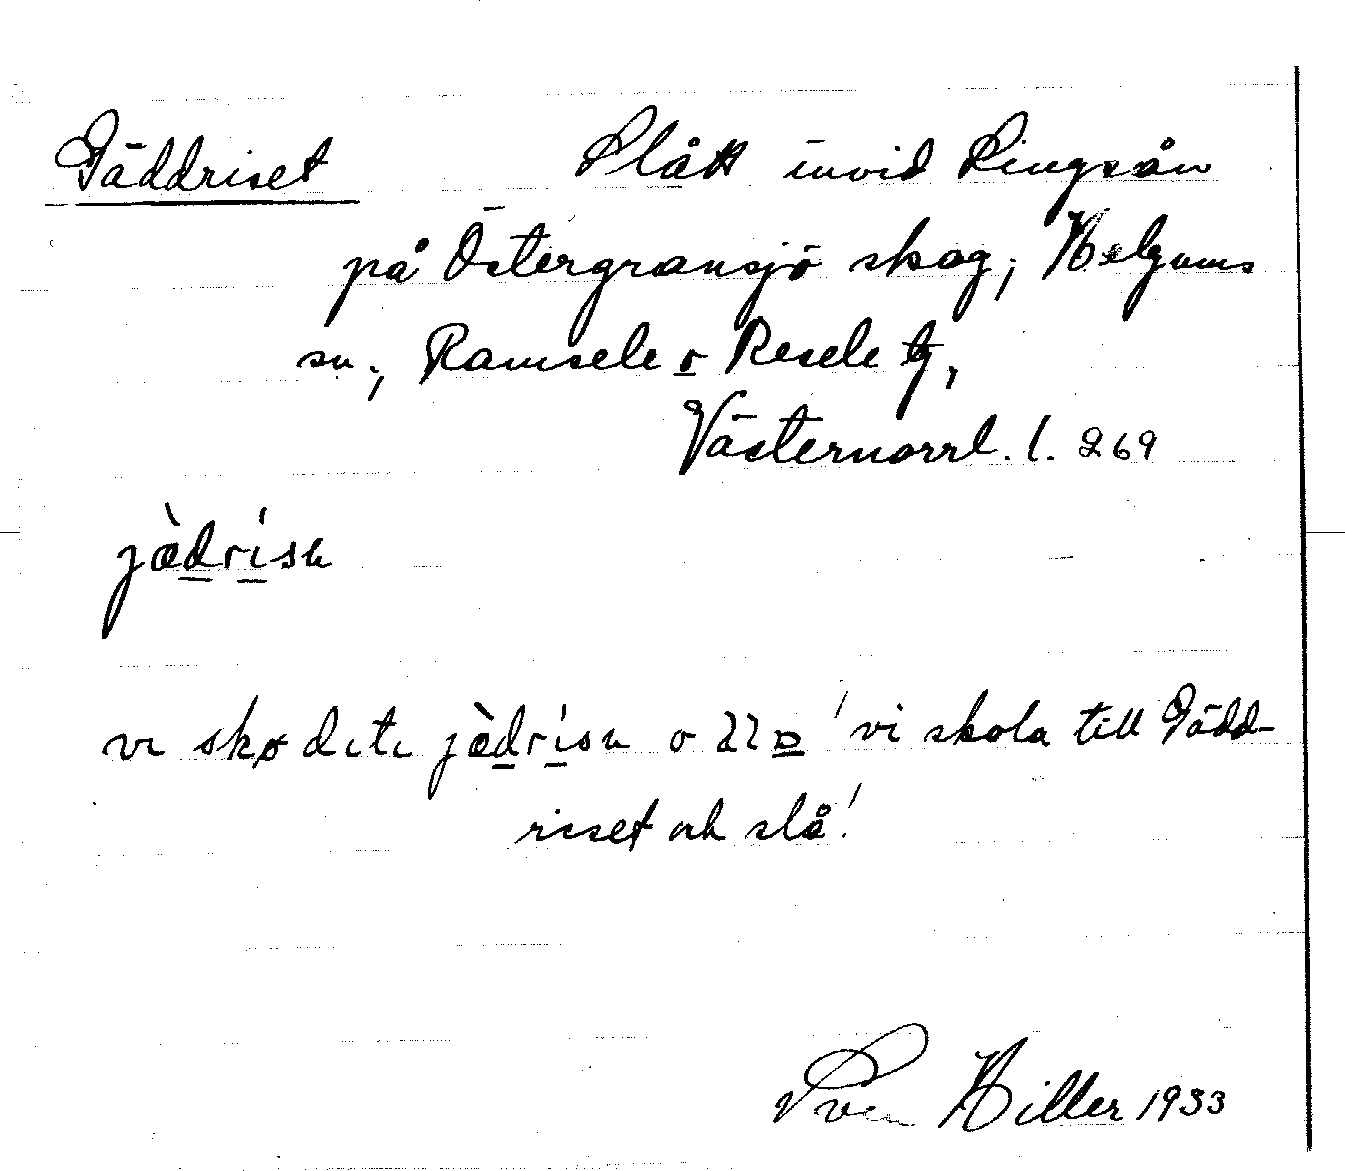 Gäddriset Slått invid Ringsån
på Östergransjö skog, Helgums
sn., Ramsele o Resele tg,
Västernorrl. l. 269
jæ̀drísn
vi skø dıtı jæ̀drísn o 'vi skola till Gädd-
riset och slå'
Sven Hiller 1933